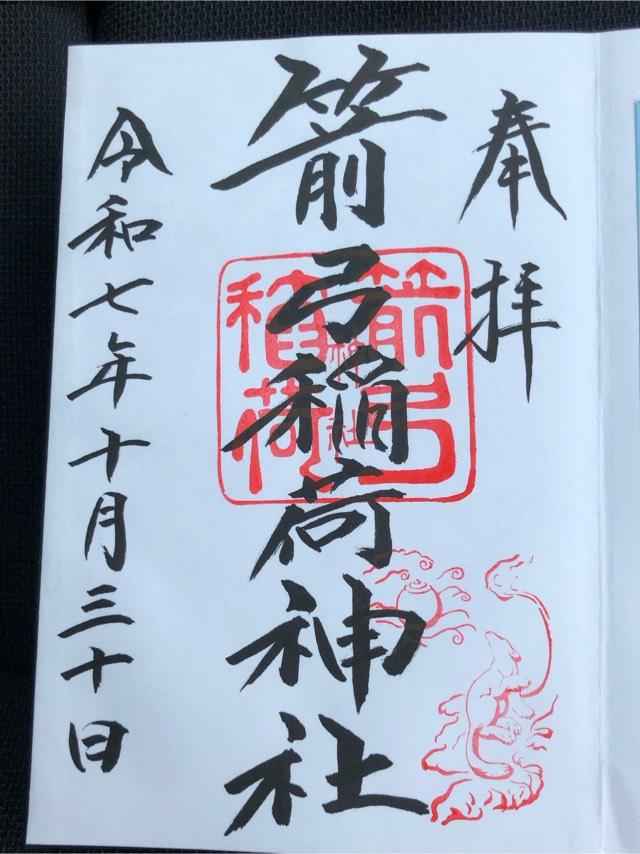 奉拝
箭弓稲荷神社
箭弓
稲荷
神社
令和七年十月三十日